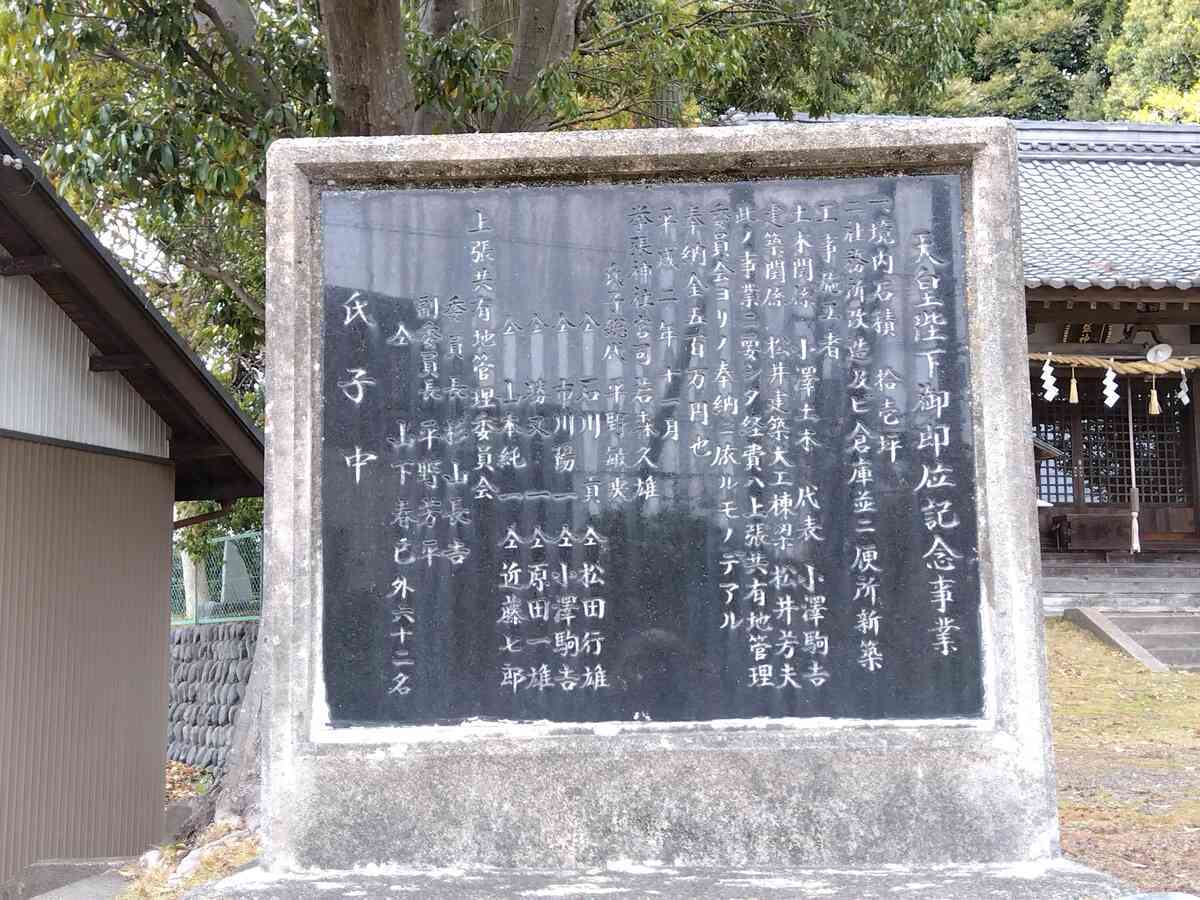 天皇陛下御即位記念事業
一境内石積 拾壱坪
二社務所改造及ビ倉庫並ニ便所新築
工事施工者
土木関係 小澤土木 代表 小澤駒吉
建築関係 松井建築大工棟梁 松井芳夫
此ノ事業ニ要シタ経費ハ上張共有地管理
委員会ヨリノ奉納ニ依ルモノデアル
奉納金五百万円也
平成二年十一月
挙張神社宮司 若森久雄
氏子総代 平野敏夫
仝 石川 貢 仝 松田行雄
仝 市川陽一 仝 小澤駒吉
仝 勝又 一 仝 原田一雄
仝 山本純一 仝 近藤七郎
上張共有地管理委員会
委員長 杉山長吉
副委員長 平野芳平
仝 山下春已 外六十二名
氏子中